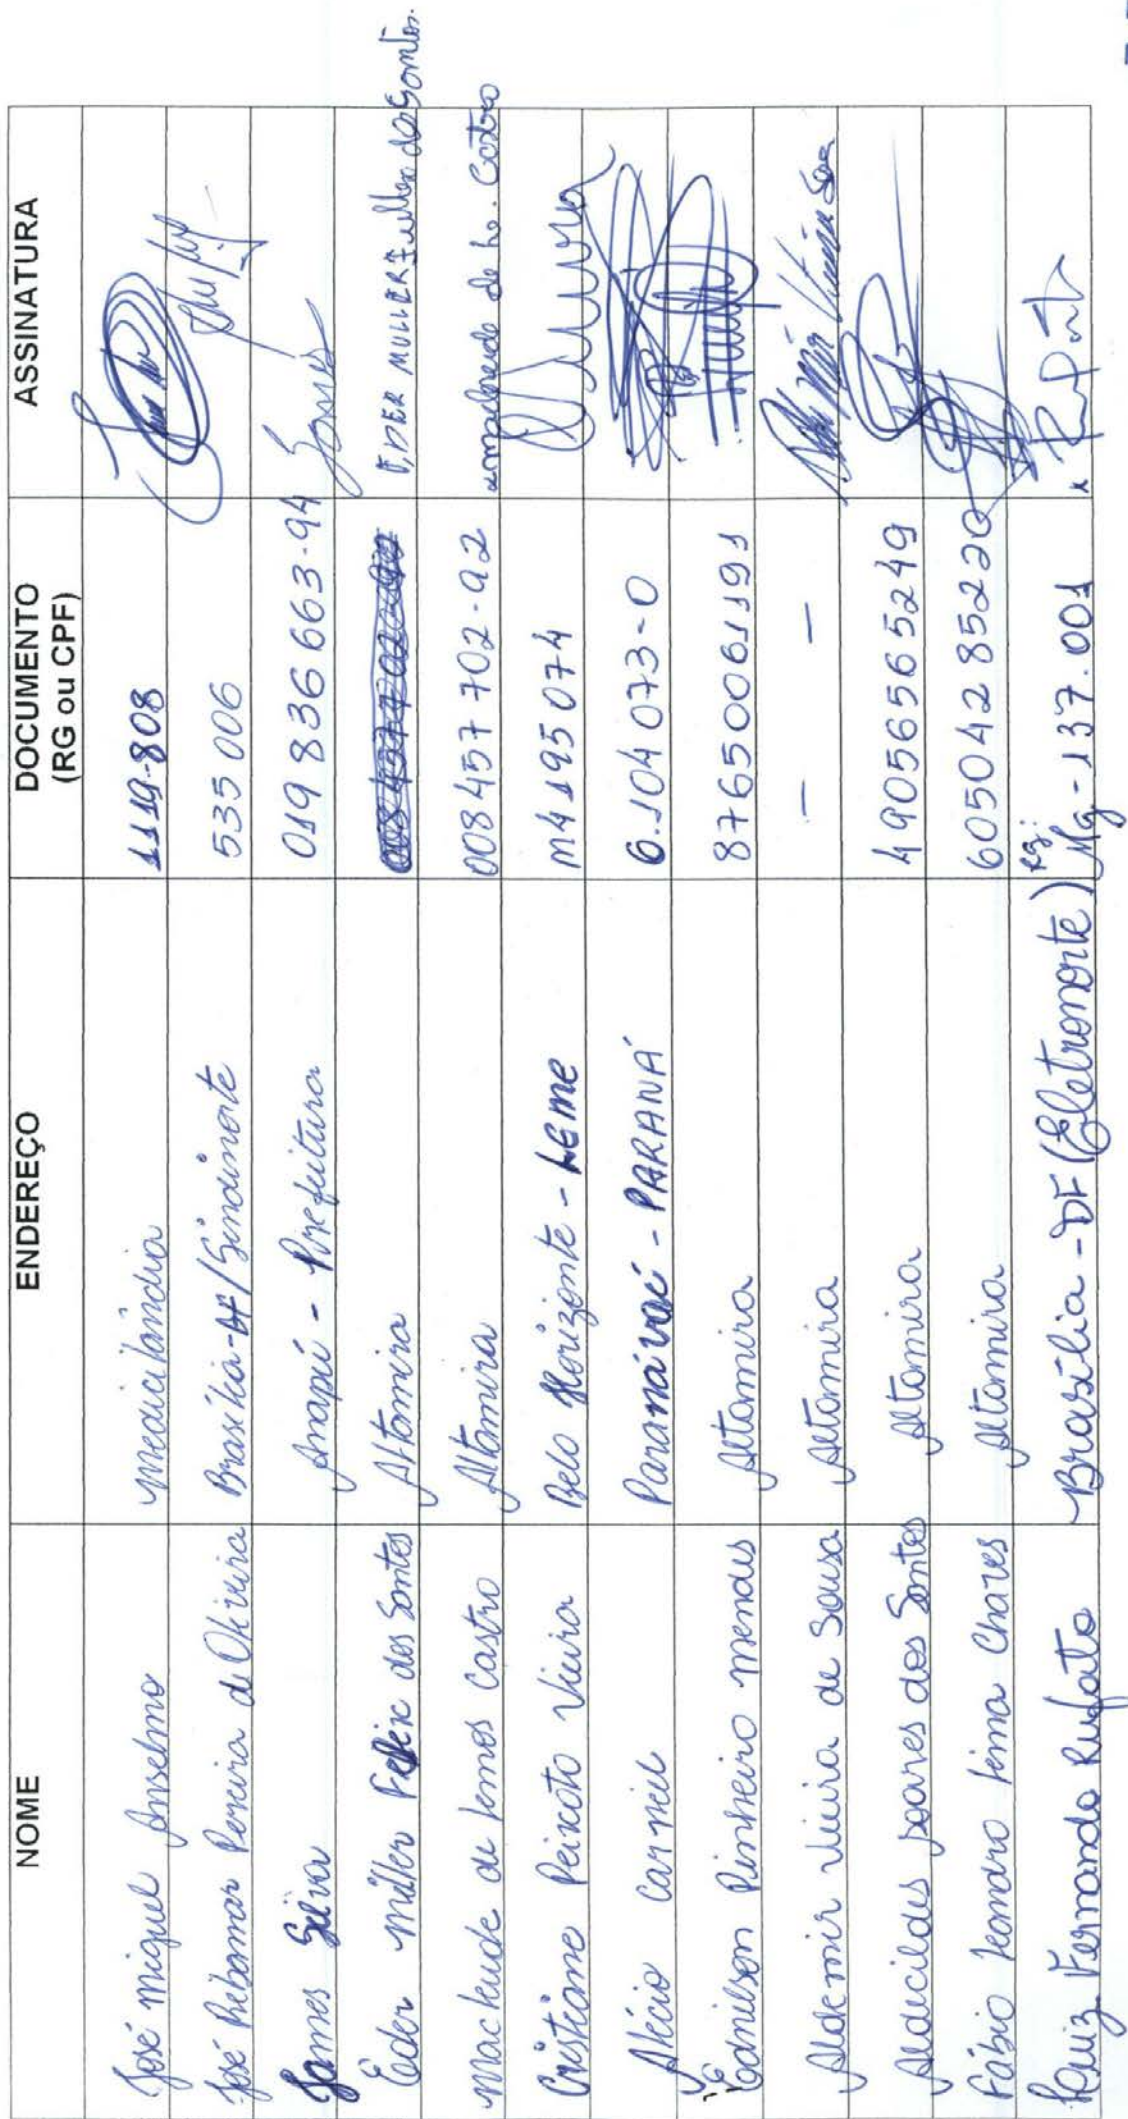 NOME ENDEREÇO DOCUMENTO (RG ou CPF) ASSINATURA
José Miguel Anselmo medicilândia 1119-808
José Ribamar Pereira de Oliveira Brasília-DF/Sindinorte 535 006
James Silva Anapú - Prefeitura 019 836 663-94
Eder Müller Felix dos Santos Altamira EDER MULLER Felix dos Santos
Mackeude de Lemos Castro Altamira 008 457 702-92 de Le. Castro
Cristiane Peixoto Vieira Belo Horizonte - LEME M4 195 074
Alécio Carniel Paranávaí - PARANÁ 6.104 073-0
Ednilson Pinheiro mendes Altamira 87650061191
Aldemir Vieira de Sousa Altamira — —
Aldecildes soares dos Santos Altamira 49056565249
Fábio Leandro Lima Chaves Altamira 60504285220
Luiz Fernando Rufato Brasília - DF (Eletronorte) RG: Mg - 137.001 x